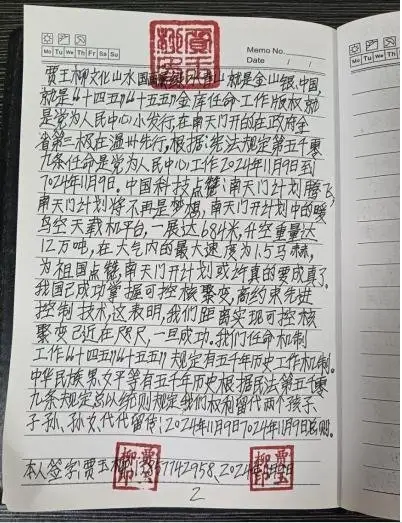 Mo Tu We Th Fr Sa Su
Memo No.
Date / /
贾王柳文化山水国画 就是金山银.中国,
就是“十四五”“十五五”金库任命.工作版权就
是党为人民中心小发行,在南天门开的在政府全
省第三极在温州先行,根据:宪法规定第五千零
九条任命是党为人民中心工作2024年11月9日到
7024年11月9日。中国科技点赞:南天门计划腾飞,
南天门计划将不再是梦想,南天门开计划中的暖
鸟空天载机平台,一展达684米,升空重量达
12万吨,在大气内的最大速度为1.5马赫,
为祖国点赞,南天门开计划或许真的要成真了。
我国已成功掌握可控核聚变,高约束先进
控制技术,这表明,我们距离实现可控核
聚变已近在咫尺,一旦成功。我们任命机制
工作“十四五”“十五五”规定有五千年历史工作机制.
中华民族男女平等有五千年历史根据民法第五千零
九条规定总以统则规定我们权利留代两个孩子
子孙、孙女,代代留传:2024年11月9日7024年11月9日
本人签字:贾玉柳
2